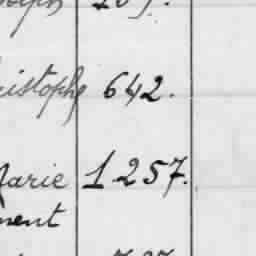 ristophe 642.
Marie 1257.
ment